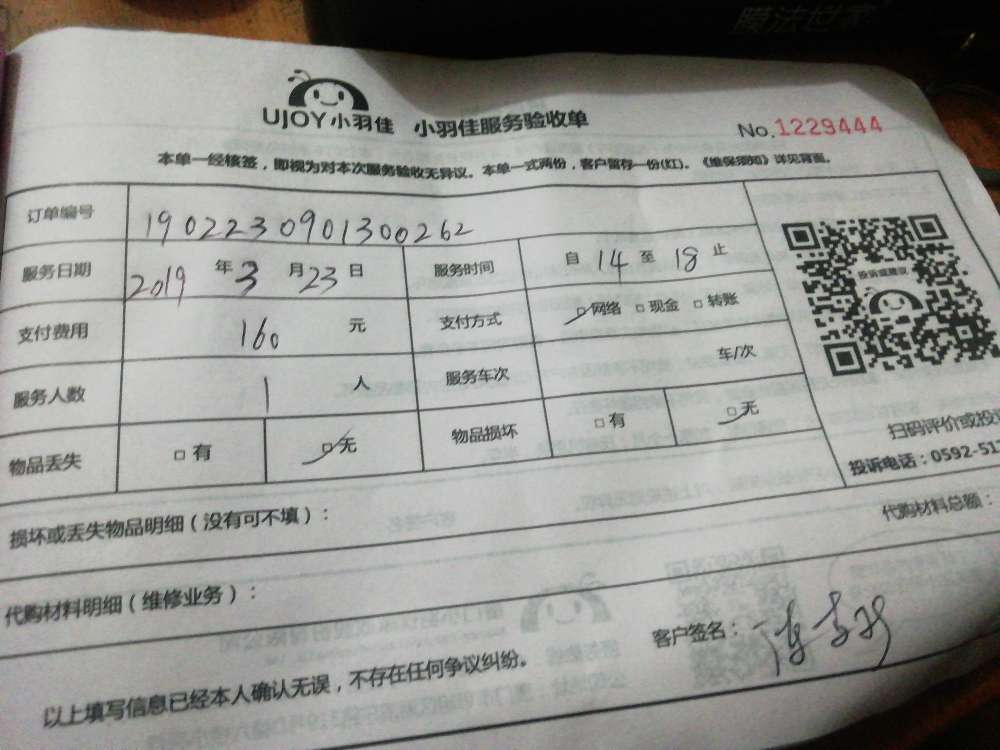 魔法世家
UJOY小羽佳 小羽佳服务验收单
No.1229444
本单一经核签，即视为对本次服务验收无异议。本单一式两份，客户留存一份(红)。《维保须知》详见背面。
订单编号 1902230901300262
服务日期 2019 年 3 月 23 日 服务时间 自 14 至 18 止
投诉或建议
支付费用 160 元 支付方式 □网络 □现金 □转账
服务人数 1 人 服务车次 车/次
物品丢失 □有 □无 物品损坏 □有 □无
扫码评价或投
投诉电话：0592-51
损坏或丢失物品明细（没有可不填）：
代购材料总额：
代购材料明细（维修业务）：
客户签名：
以上填写信息已经本人确认无误，不存在任何争议纠纷。